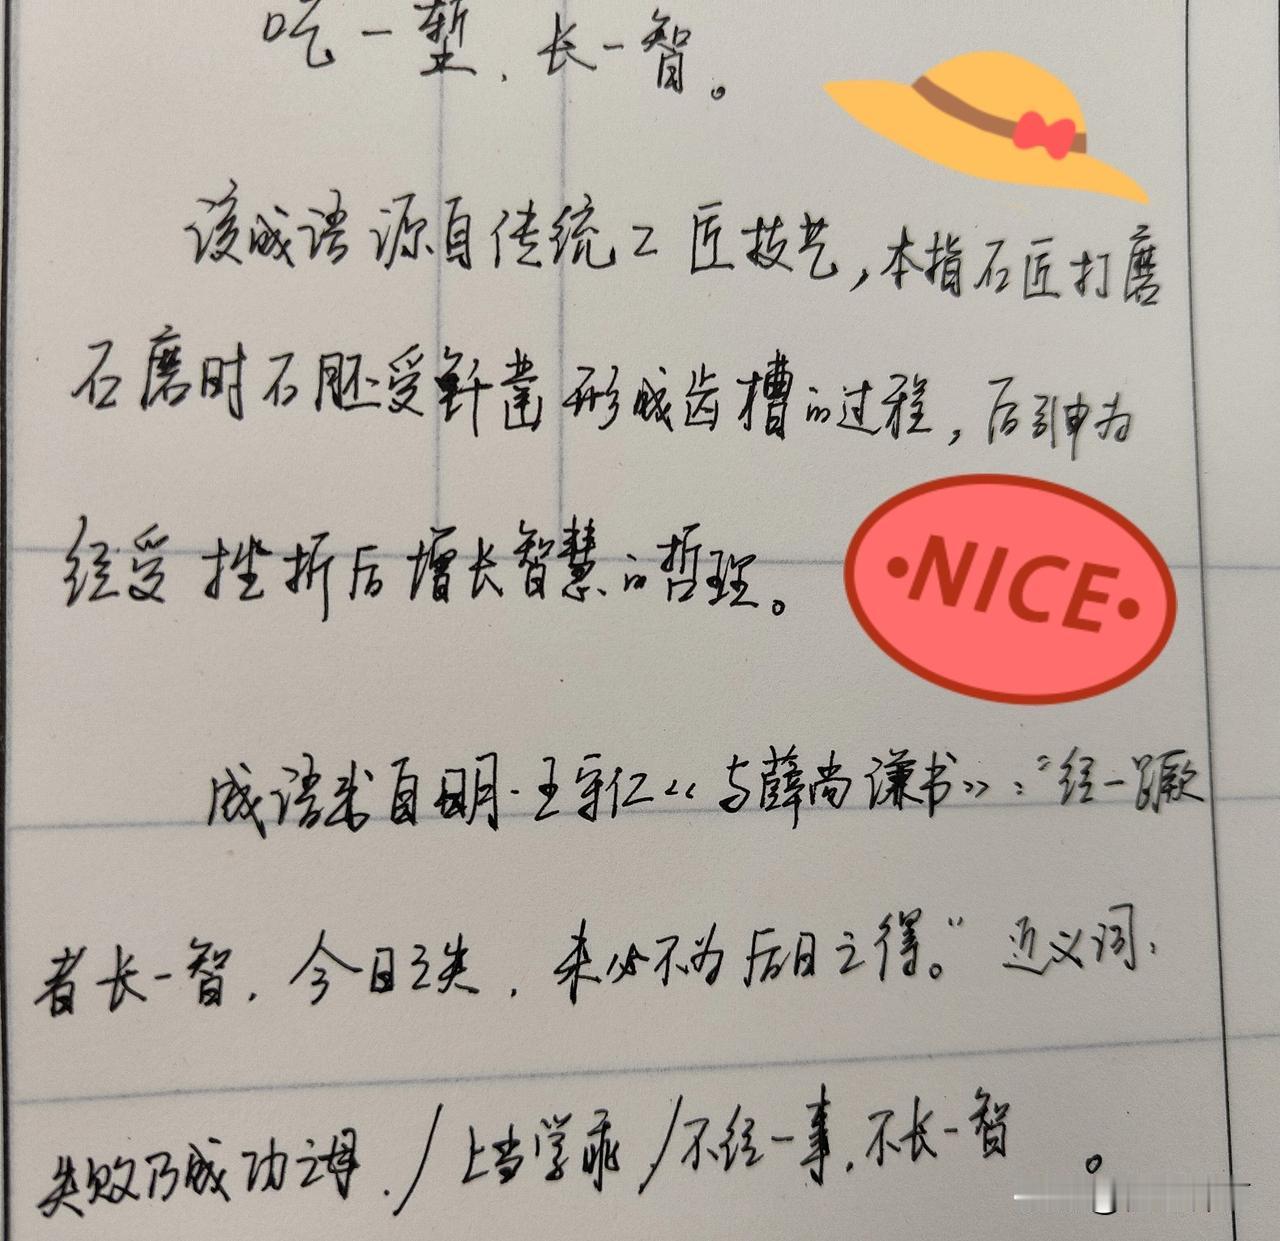 吃一堑、长一智。
该成语源自传统工匠技艺,本指石匠打磨
石磨时石胚受钎凿形成齿槽的过程,后引申为
经受挫折后增长智慧的哲理。
•NICE•
成语来自明·王守仁《与薛尚谦书》:“经一蹶
者长一智,今日之失,未必不为后日之得。”近义词:
失败乃成功之母./上当学乖/不经一事,不长一智。